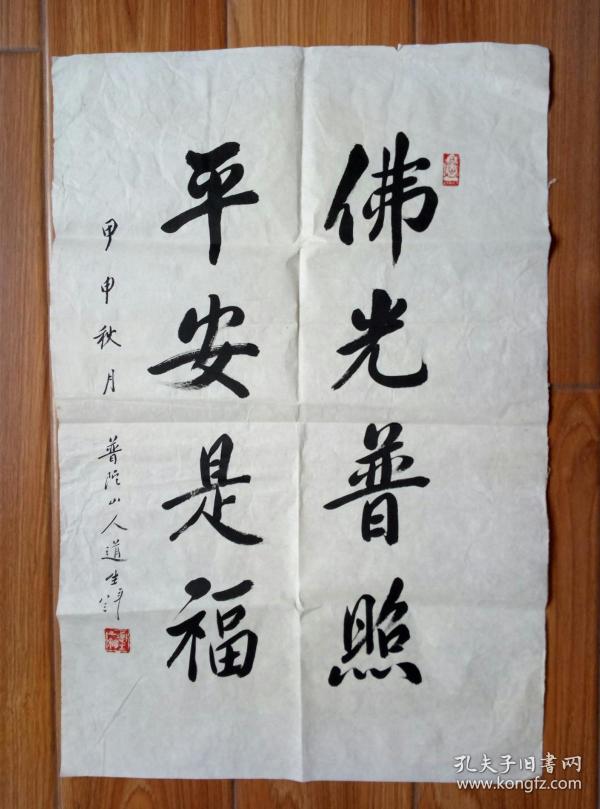 佛光普照
平安是福
甲申秋月
普陀山人道生
孔夫子旧书网
www.kongfz.com